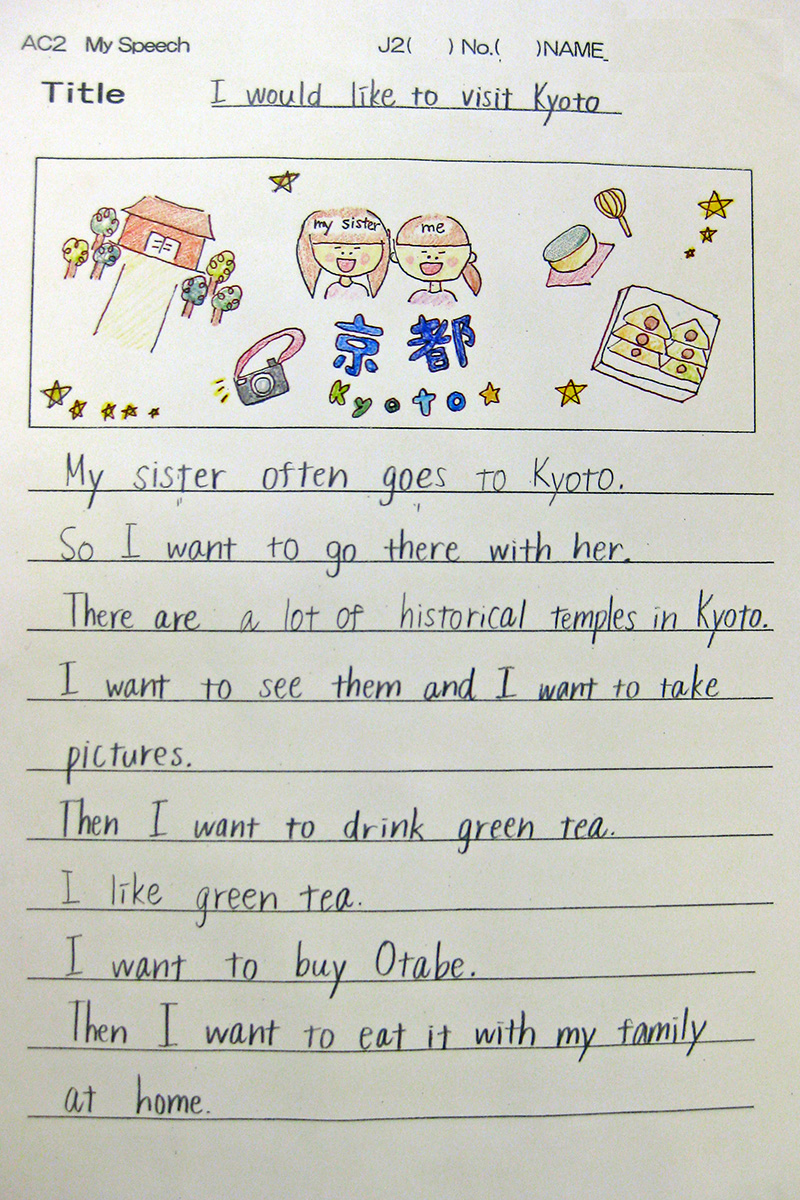 AC2 My Speech J2( ) No.( )NAME
Title I would like to visit Kyoto
my sister me
京都
Kyoto
My sister often goes to Kyoto.
So I want to go there with her.
There are a lot of historical temples in Kyoto.
I want to see them and I want to take
pictures.
Then I want to drink green tea.
I like green tea.
I want to buy Otabe.
Then I want to eat it with my family
at home.